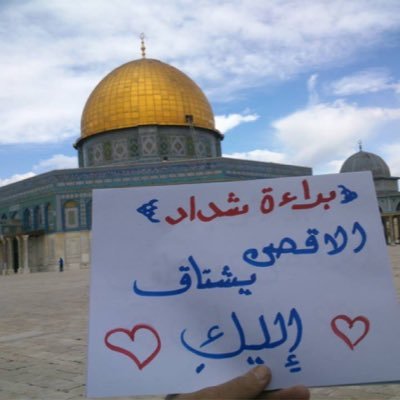 براءة شداد
الاقصى
يشتاق
إليكِ